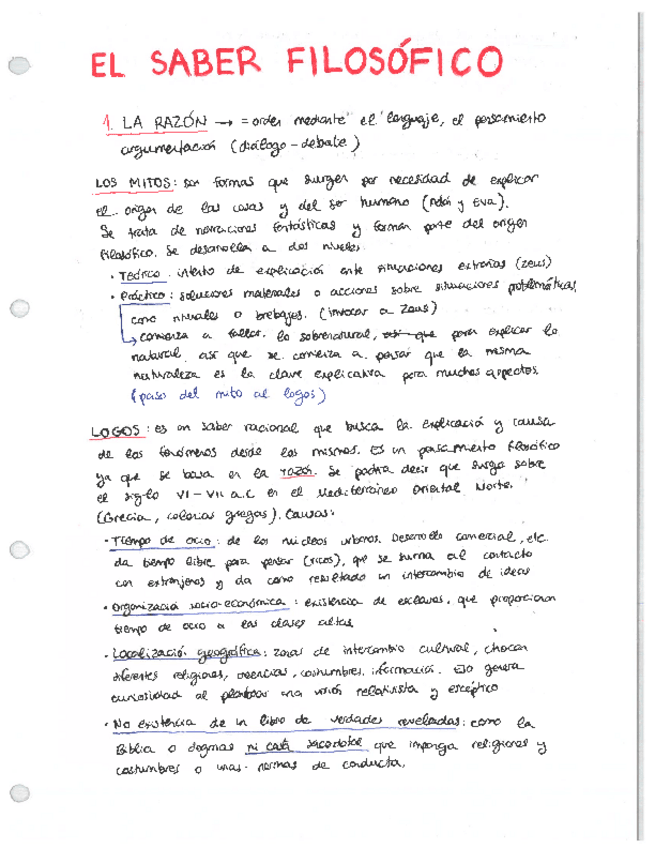 EL SABER FILOSÓFICO
1. LA RAZÓN → = orden mediante el lenguaje, el pensamiento
argumentación (diálogo - debate)
LOS MITOS: son formas que surgen por necesidad de explicar
el origen de las cosas y del ser humano (Adán y Eva).
Se trata de narraciones fantásticas y forman parte del origen
filosófico. Se desarrolla a dos niveles
· Teórico: intento de explicación ante situaciones extrañas (Zeus)
· Práctico: soluciones materiales o acciones sobre situaciones problemáticas,
como rituales o brebajes. (invocar a Zeus)
↳ comienza a fallar lo sobrenatural, así que para explicar lo
natural, así que se comienza a pensar que la misma
naturaleza es la clave explicativa para muchos aspectos
(paso del mito al logos)
LOGOS: es un saber racional que busca la explicación y causa
de los fenómenos desde los mismos. Es un pensamiento filosófico
ya que se basa en la razón. Se podría decir que surge sobre
el siglo VI - VII a.C en el Mediterráneo Oriental Norte.
(Grecia, colonias griegas). Causas:
· Tiempo de ocio: de los núcleos urbanos. Desarrollo comercial, etc.
da tiempo libre para pensar (ricos), que se suma al contacto
con extranjeros y da como resultado un intercambio de ideas
· Organización socio-económica: existencia de esclavos, que proporcionan
tiempo de ocio a las clases altas
· Localización geográfica: zonas de intercambio cultural, chocan
diferentes religiones, creencias, costumbres, información. Eso genera
curiosidad al plantear una visión relativista y escéptico
· No existencia de un libro de verdades reveladas: como la
Biblia o dogmas ni casta sacerdotal que imponga religiones y
costumbres o unas normas de conducta.